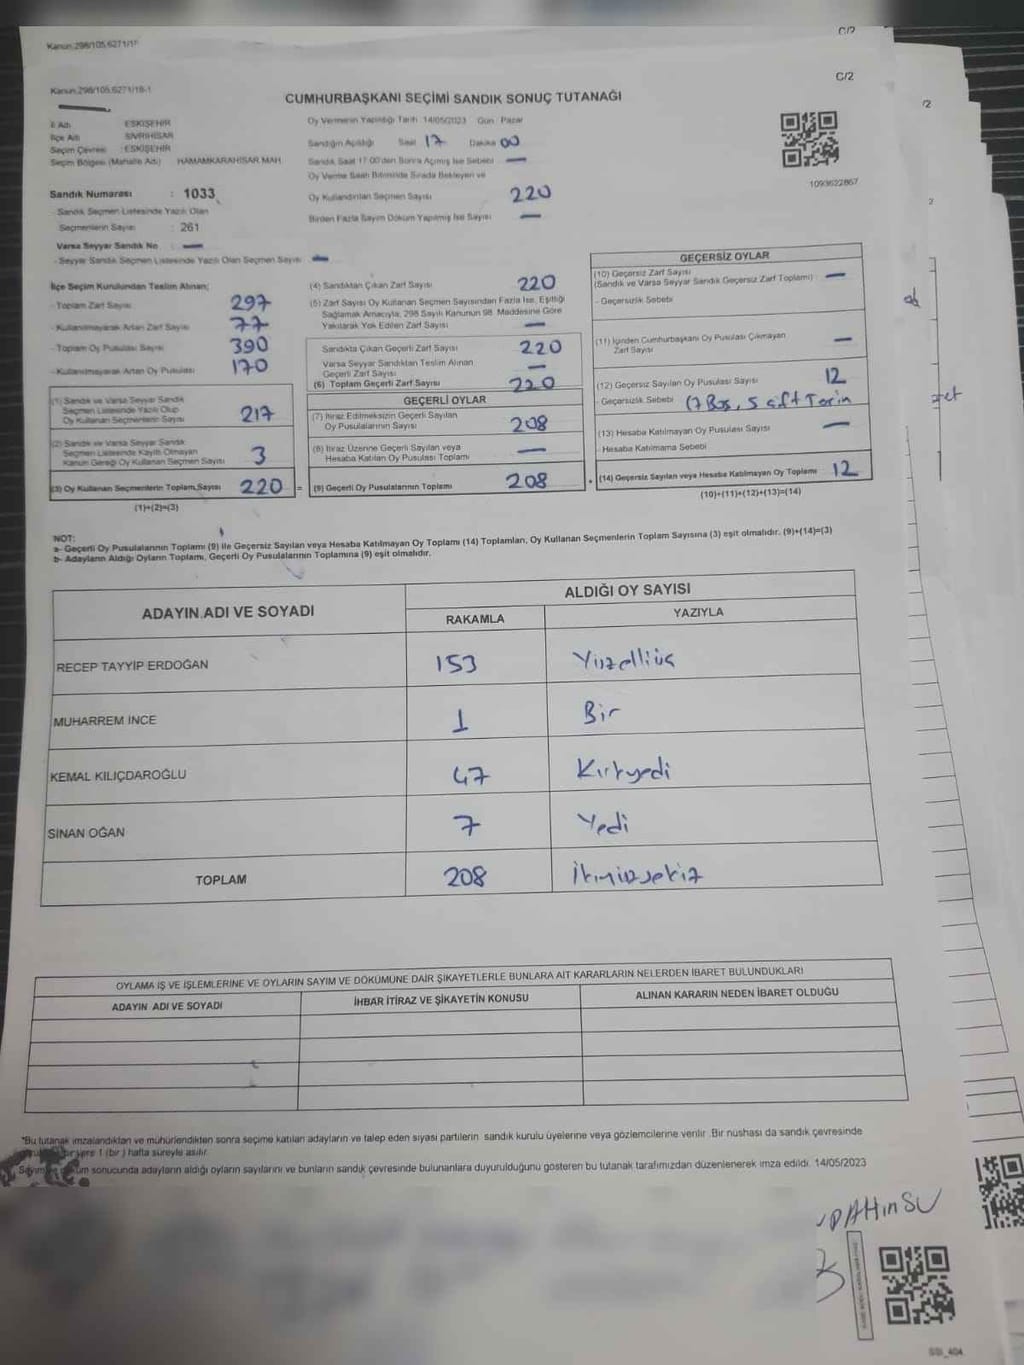 Kanun.298/105.6271/1
C/2
Kanun.298/105.6271/18-1
C/2
CUMHURBAŞKANI SEÇİMİ SANDIK SONUÇ TUTANAĞI
İl Adı ESKİŞEHİR
İlçe Adı SİVRİHİSAR
Seçim Çevresi : ESKİŞEHİR
Seçim Bölgesi (Mahalle Adı) HAMAMKARAHİSAR MAH.
Sandık Numarası : 1033
- Sandık Seçmen Listesinde Yazılı Olan
Seçmenlerin Sayısı : 261
Varsa Seyyar Sandık No —
- Seyyar Sandık Seçmen Listesinde Yazılı Olan Seçmen Sayısı —
Oy Vermenin Yapıldığı Tarih 14/05/2023 Gün Pazar
Sandığın Açıldığı Saat 17 Dakika 00
Sandık Saat 17:00'den Sonra Açılmış İse Sebebi —
Oy Verme Saati Bitiminde Sırada Bekleyen ve
Oy Kullandırılan Seçmen Sayısı 220
Birden Fazla Sayım Döküm Yapılmış İse Sayısı —
1093622867
İlçe Seçim Kurulundan Teslim Alınan;
- Toplam Zarf Sayısı 297
- Kullanılmayarak Artan Zarf Sayısı 77
- Toplam Oy Pusulası Sayısı 390
- Kullanılmayarak Artan Oy Pusulası 170
(1) Sandık ve Varsa Seyyar Sandık
Seçmen Listesinde Yazılı Olup
Oy Kullanan Seçmenlerin Sayısı 217
(2) Sandık ve Varsa Seyyar Sandık
Seçmen Listesinde Kayıtlı Olmayan
Kanun Gereği Oy Kullanan Seçmen Sayısı 3
(3) Oy Kullanan Seçmenlerin Toplam Sayısı 220
(1)+(2)=(3)
(4) Sandıktan Çıkan Zarf Sayısı 220
(5) Zarf Sayısı Oy Kullanan Seçmen Sayısından Fazla İse, Eşitliği
Sağlamak Amacıyla, 298 Sayılı Kanunun 98. Maddesine Göre
Yakılarak Yok Edilen Zarf Sayısı —
Sandıkta Çıkan Geçerli Zarf Sayısı 220
Varsa Seyyar Sandıktan Teslim Alınan
Geçerli Zarf Sayısı —
(6) Toplam Geçerli Zarf Sayısı 220
GEÇERLİ OYLAR
(7) İtiraz Edilmeksizin Geçerli Sayılan
Oy Pusulalarının Sayısı 208
(8) İtiraz Üzerine Geçerli Sayılan veya
Hesaba Katılan Oy Pusulası Toplamı —
= (9) Geçerli Oy Pusulalarının Toplamı 208
GEÇERSİZ OYLAR
(10) Geçersiz Zarf Sayısı
(Sandık ve Varsa Seyyar Sandık Geçersiz Zarf Toplamı) —
- Geçersizlik Sebebi
(11) İçinden Cumhurbaşkanı Oy Pusulası Çıkmayan
Zarf Sayısı —
(12) Geçersiz Sayılan Oy Pusulası Sayısı 12
- Geçersizlik Sebebi (7 Boş, 5 çift
(13) Hesaba Katılmayan Oy Pusulası Sayısı —
- Hesaba Katılmama Sebebi
+ (14) Geçersiz Sayılan veya Hesaba Katılmayan Oy Toplamı 12
(10)+(11)+(12)+(13)=(14)
NOT:
a- Geçerli Oy Pusulalarının Toplamı (9) ile Geçersiz Sayılan veya Hesaba Katılmayan Oy Toplamı (14) Toplamları, Oy Kullanan Seçmenlerin Toplam Sayısına (3) eşit olmalıdır. (9)+(14)=(3)
b- Adayların Aldığı Oyların Toplamı, Geçerli Oy Pusulalarının Toplamına (9) eşit olmalıdır.
ADAYIN ADI VE SOYADI
ALDIĞI OY SAYISI
RAKAMLA YAZIYLA
RECEP TAYYİP ERDOĞAN 153 Yüzelliüç
MUHARREM İNCE 1 Bir
KEMAL KILIÇDAROĞLU 47 Kırkyedi
SİNAN OĞAN 7 Yedi
TOPLAM 208 İkiyüzsekiz
OYLAMA İŞ VE İŞLEMLERİNE VE OYLARIN SAYIM VE DÖKÜMÜNE DAİR ŞİKAYETLERLE BUNLARA AİT KARARLARIN NELERDEN İBARET BULUNDUKLARI
ADAYIN ADI VE SOYADI İHBAR İTİRAZ VE ŞİKAYETİN KONUSU ALINAN KARARIN NEDEN İBARET OLDUĞU
*Bu tutanak imzalandıktan ve mühürlendikten sonra seçime katılan adayların ve talep eden siyasi partilerin sandık kurulu üyelerine veya gözlemcilerine verilir. Bir nüshası da sandık çevresinde
bir yere 1 (bir) hafta süreyle asılır.
Sayım ve döküm sonucunda adayların aldığı oyların sayılarını ve bunların sandık çevresinde bulunanlara duyurulduğunu gösteren bu tutanak tarafımızdan düzenlenerek imza edildi. 14/05/2023